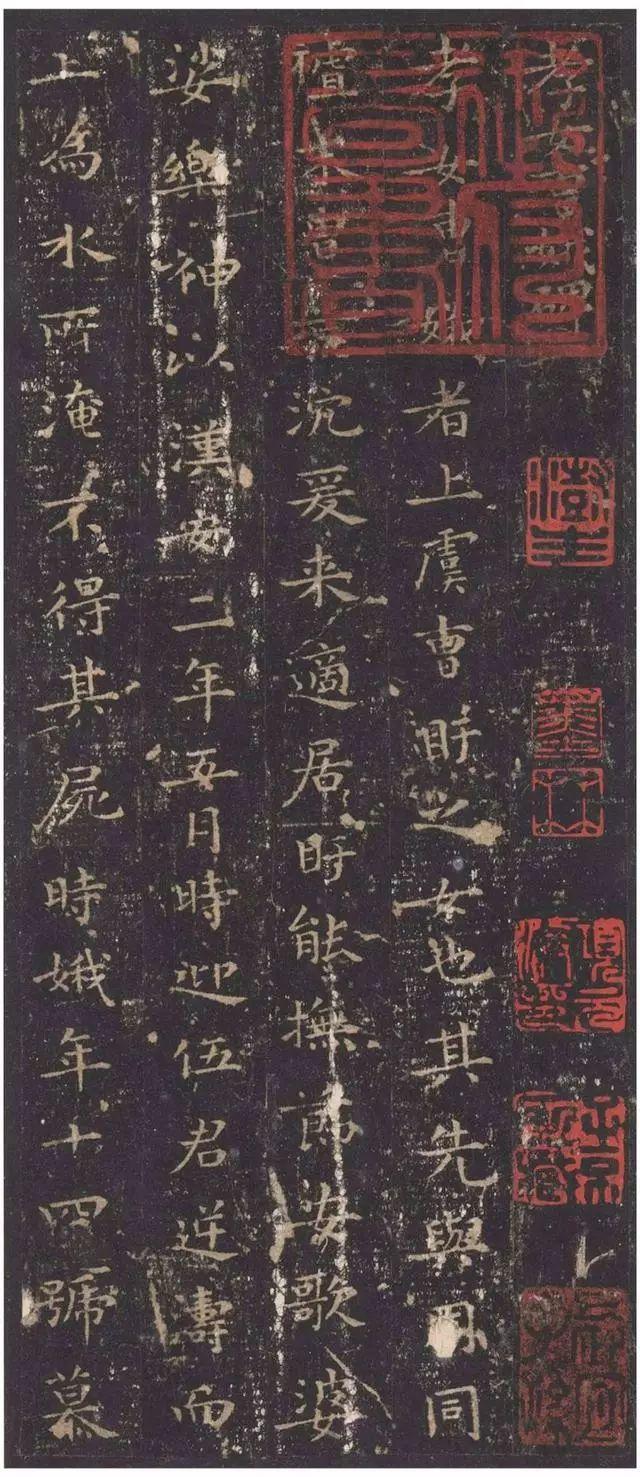 孝女曹娥碑
孝女曹娥者上虞曹盱之女也其先與周同
祖末胄荒沉爰来適居盱能撫節安歌婆
娑樂神以漢安二年五月時迎伍君逆濤而
上為水所淹不得其屍時娥年十四號慕